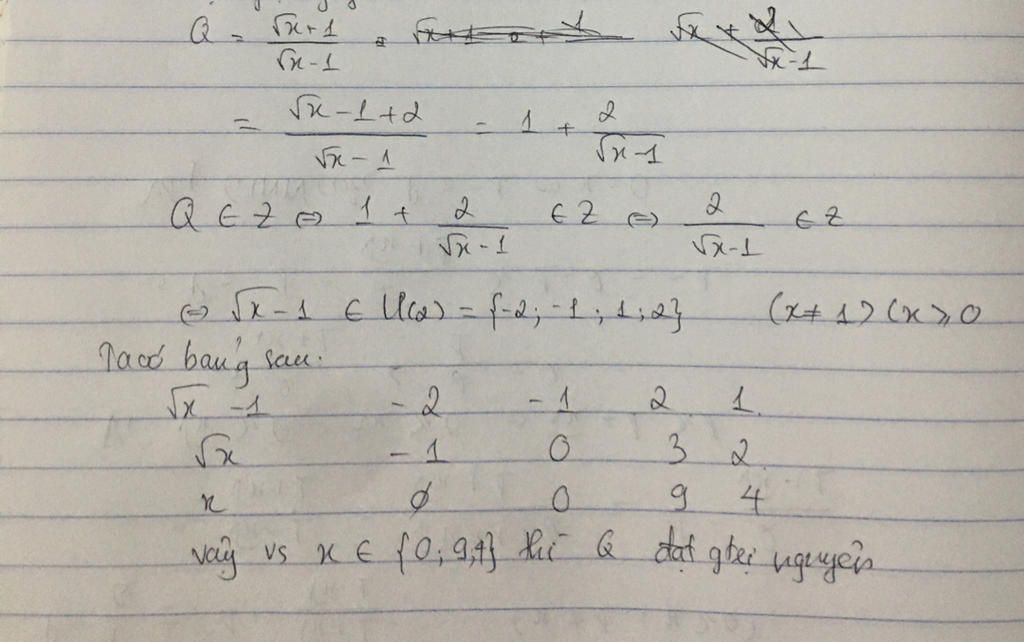 Q = √x+1 / √x-1 =
= √x-1+2 / √x-1 = 1 + 2 / √x-1
Q ∈ Z ⇔ 1 + 2 / √x-1 ∈ Z ⇔ 2 / √x-1 ∈ Z
⇔ √x-1 ∈ Ư(2) = {-2; -1; 1; 2} (x≠1) (x ⩾ 0
Ta có bảng sau:
√x -1 -2 -1 2 1
√x -1 0 3 2
x ∅ 0 9 4
vậy vs x ∈ {0; 9; 4} thì Q đạt gtrị nguyên